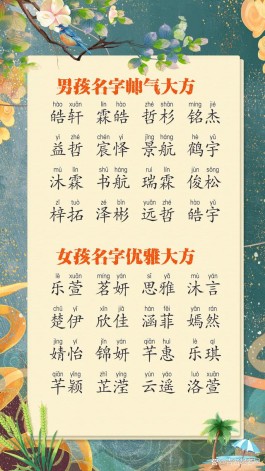 男孩名字帅气大方
hào xuān lín hào zhé shān míng jié
皓轩 霖皓 哲杉 铭杰
yì zhé chén yì jǐng háng hè yǔ
益哲 宸怿 景航 鹤宇
mù lín shū háng ruì lín jùn sōng
沐霖 书航 瑞霖 俊松
zǐ tuò zé bīn yuǎn zhé hào yǔ
梓拓 泽彬 远哲 皓宇
女孩名字优雅大方
lè xuān míng yán sī yǎ mù yán
乐萱 茗妍 思雅 沐言
chǔ yī xīn jiā hán fēi yān rán
楚伊 欣佳 涵菲 嫣然
jìng yí jǐn yán qiān huì lè qí
婧怡 锦妍 芊惠 乐琪
qiān yǐng zhǐ yíng yún yáo luò xuān
芊颖 芷滢 云遥 洛萱